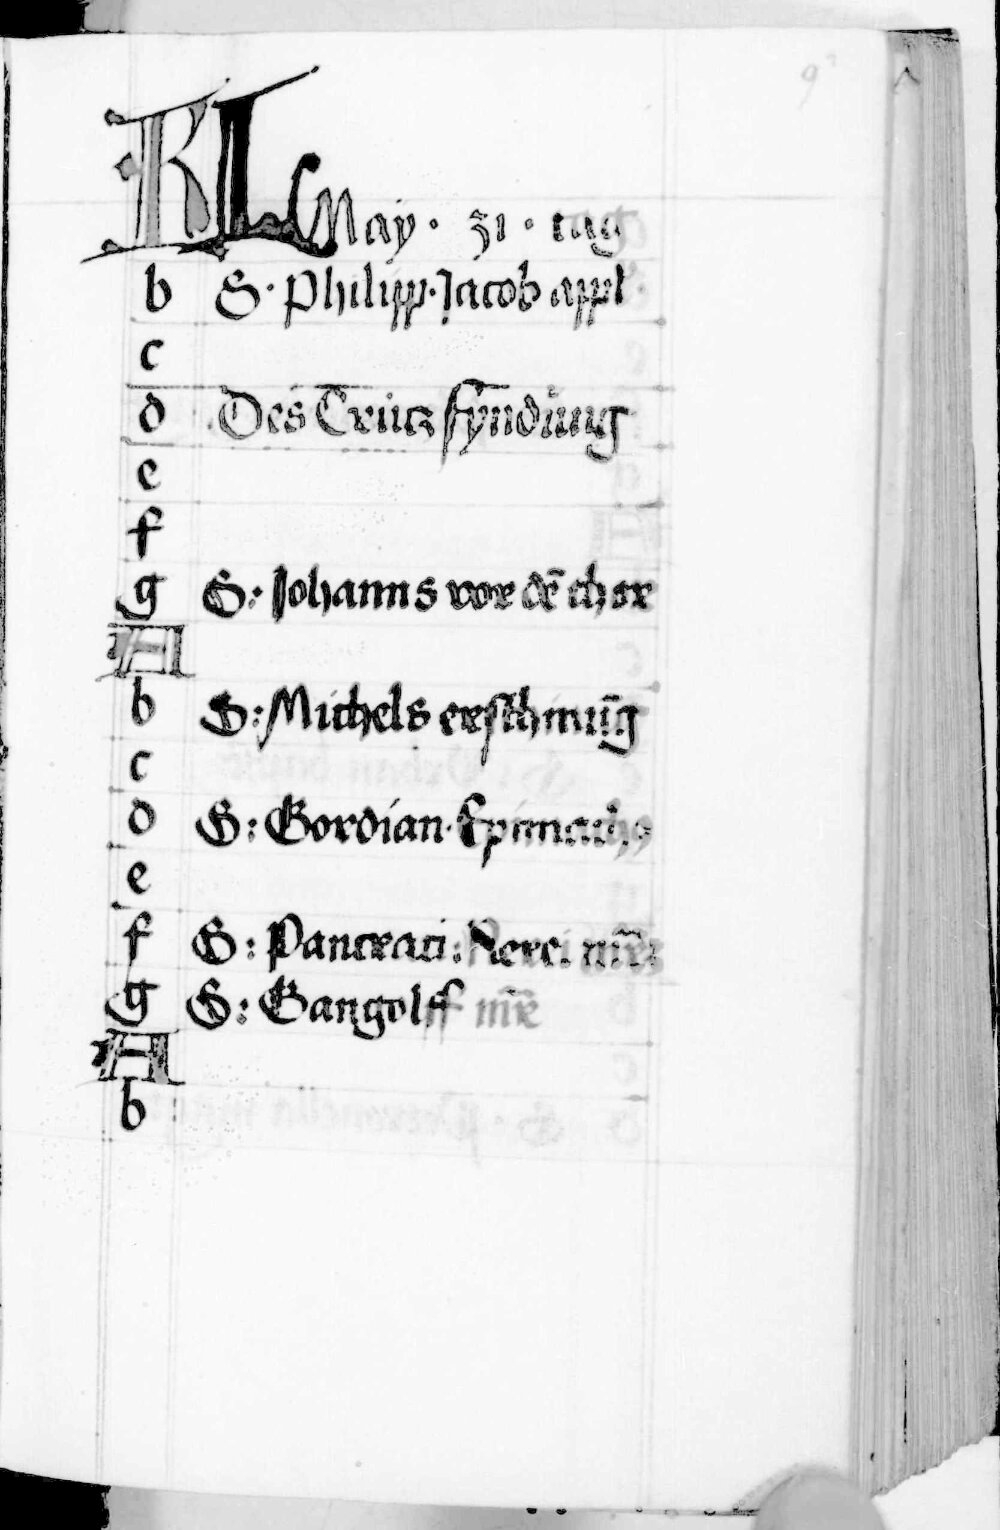 KL May · 31 · tag
b S · Philipp · Jacob appl
c
d Des Crütz fyndung
e
f
g S: Johanns vor dē chor
A
b S: Michels erschinūg
c
d S: Gordian · Epimachꝯ
e
f S: Pancraci: Nerei mr̄e
g S: Gangolff mr̄e
A
b